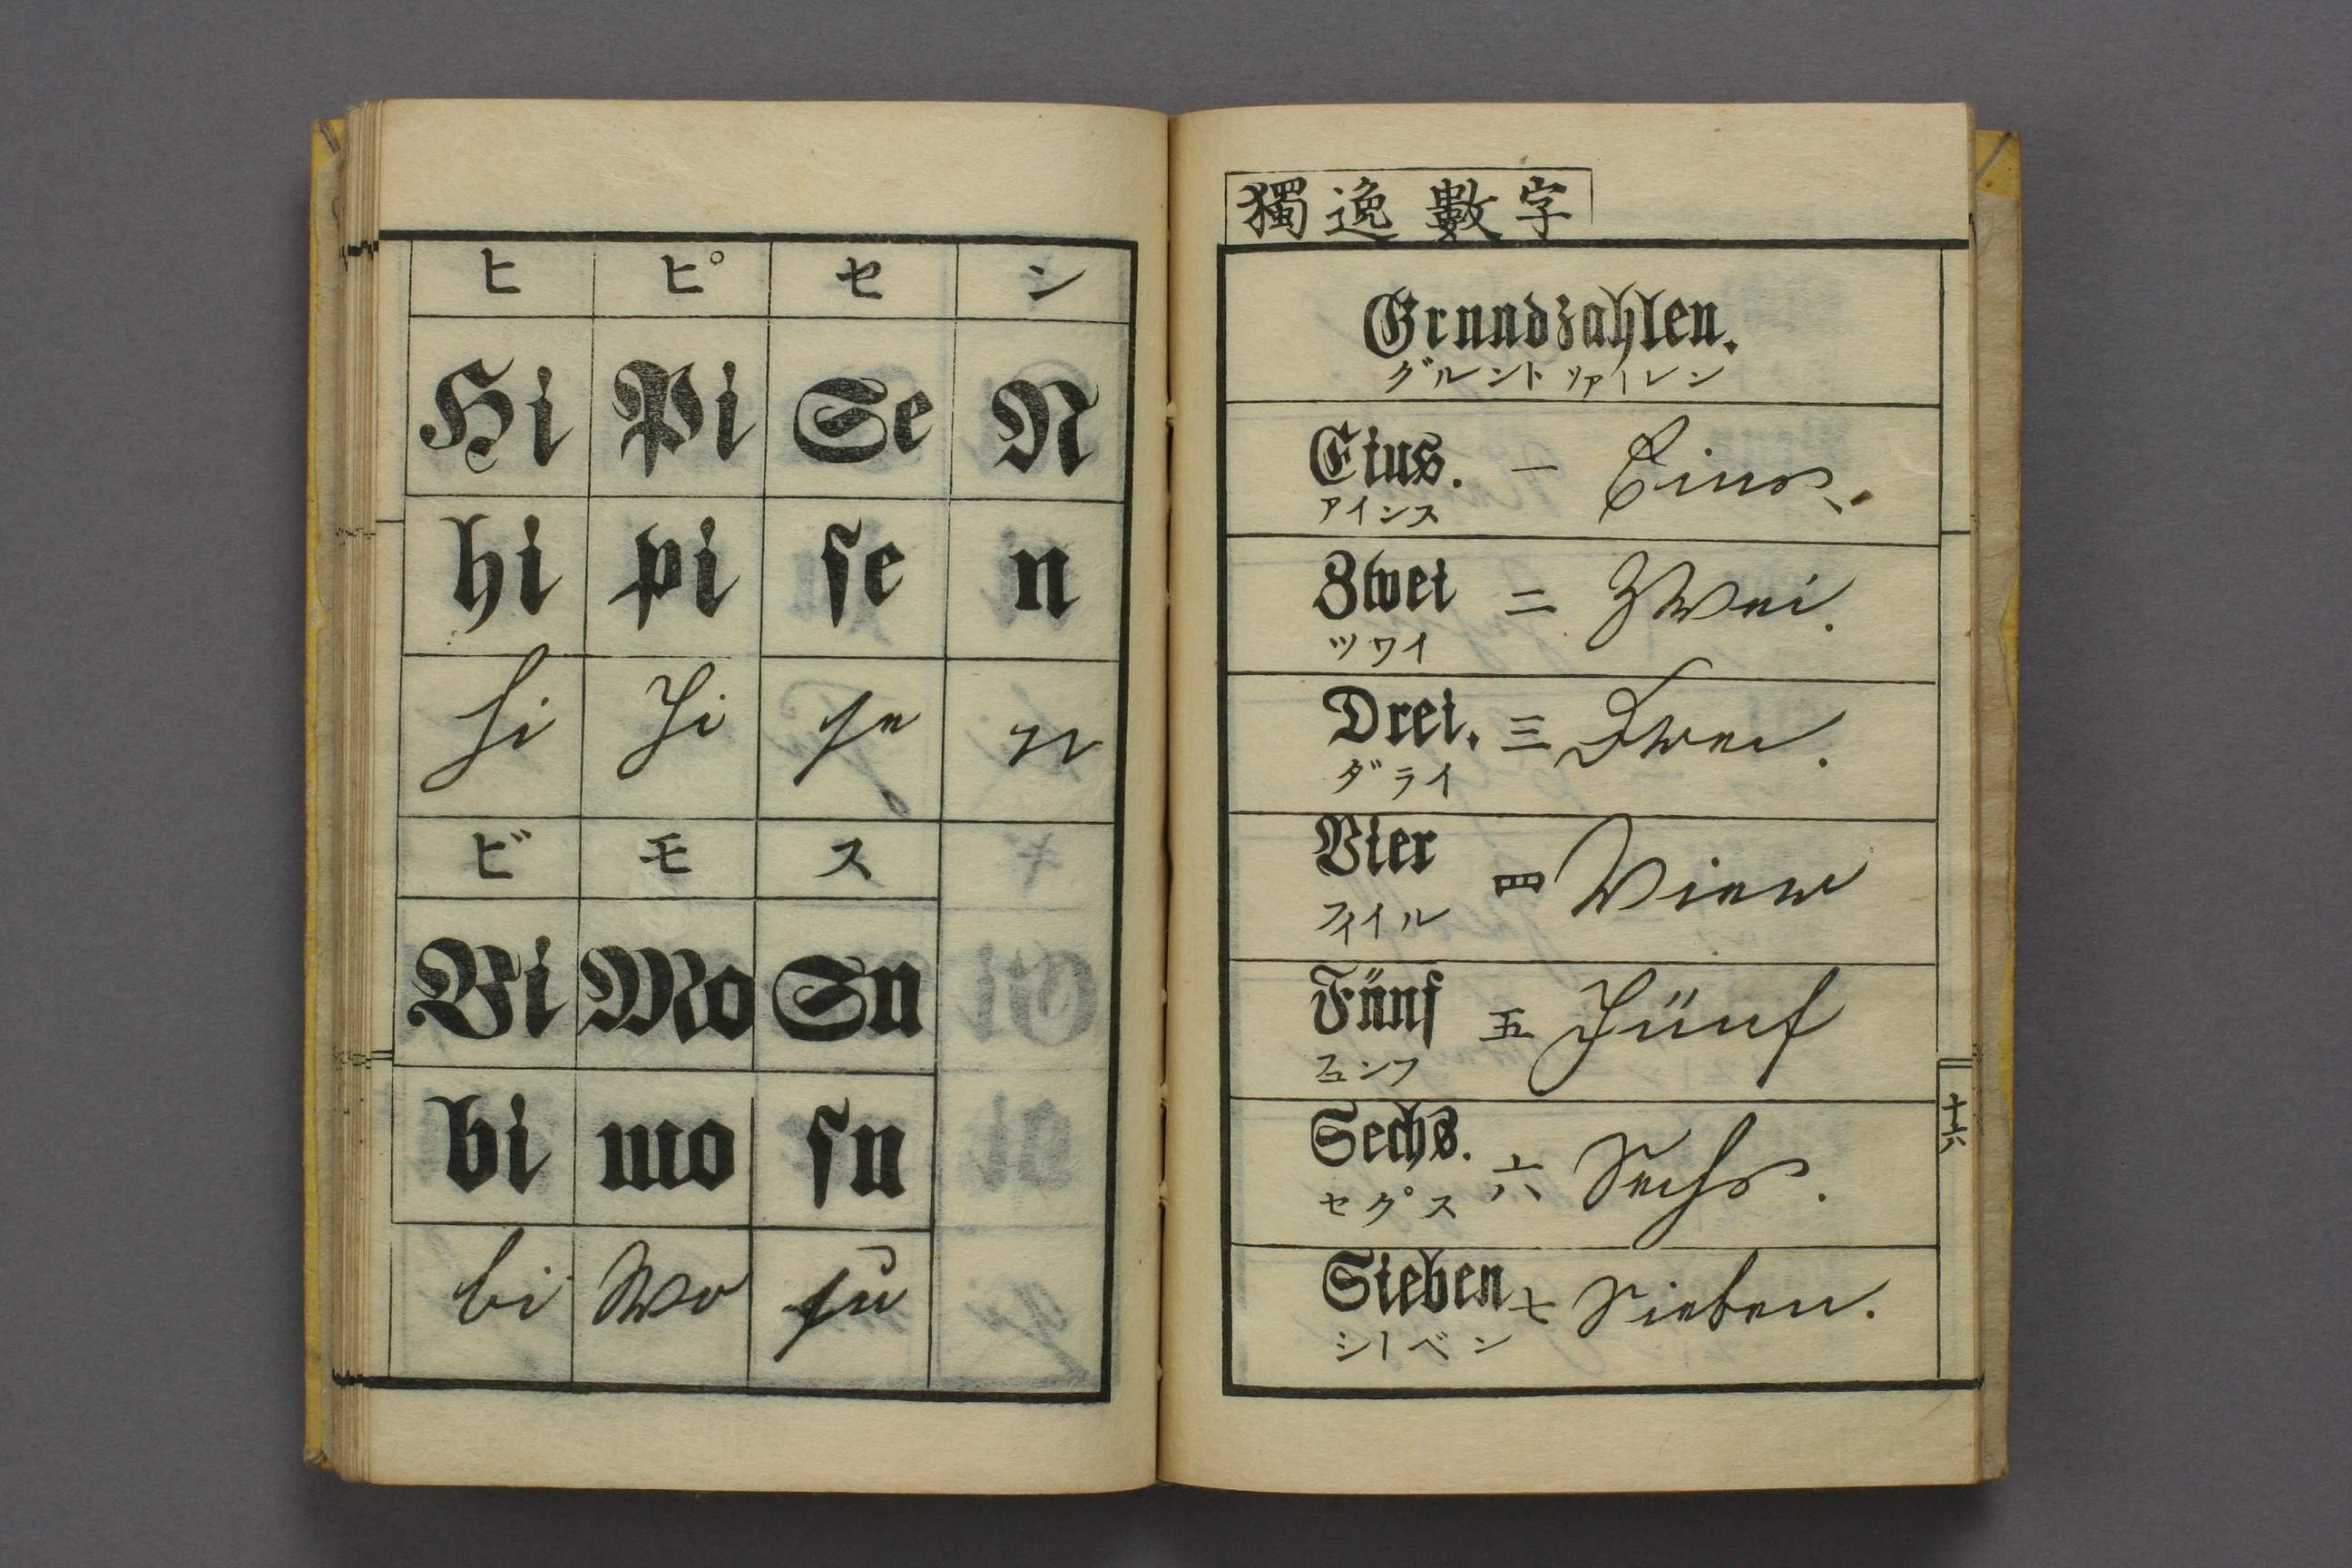 ヒ ピ セ シ
Hi Pi Se N
hi pi ſe n
hi Pi ſe n
ビ モ ス
Bi Mo Su
bi mo ſu
bi Mo ſu
獨逸數字
Grundzahlen.
グルントツァーレン
Eins. 一 Eins.
アインス
Zwei 二 Zwei.
ツワイ
Drei. 三 Drei.
ダライ
Vier 四 Vier
フィイル
Fünf 五 Fünf
フュンフ
Sechs. 六 Sechs.
セク゚ス
Sieben 七 Sieben.
シーベン
十六